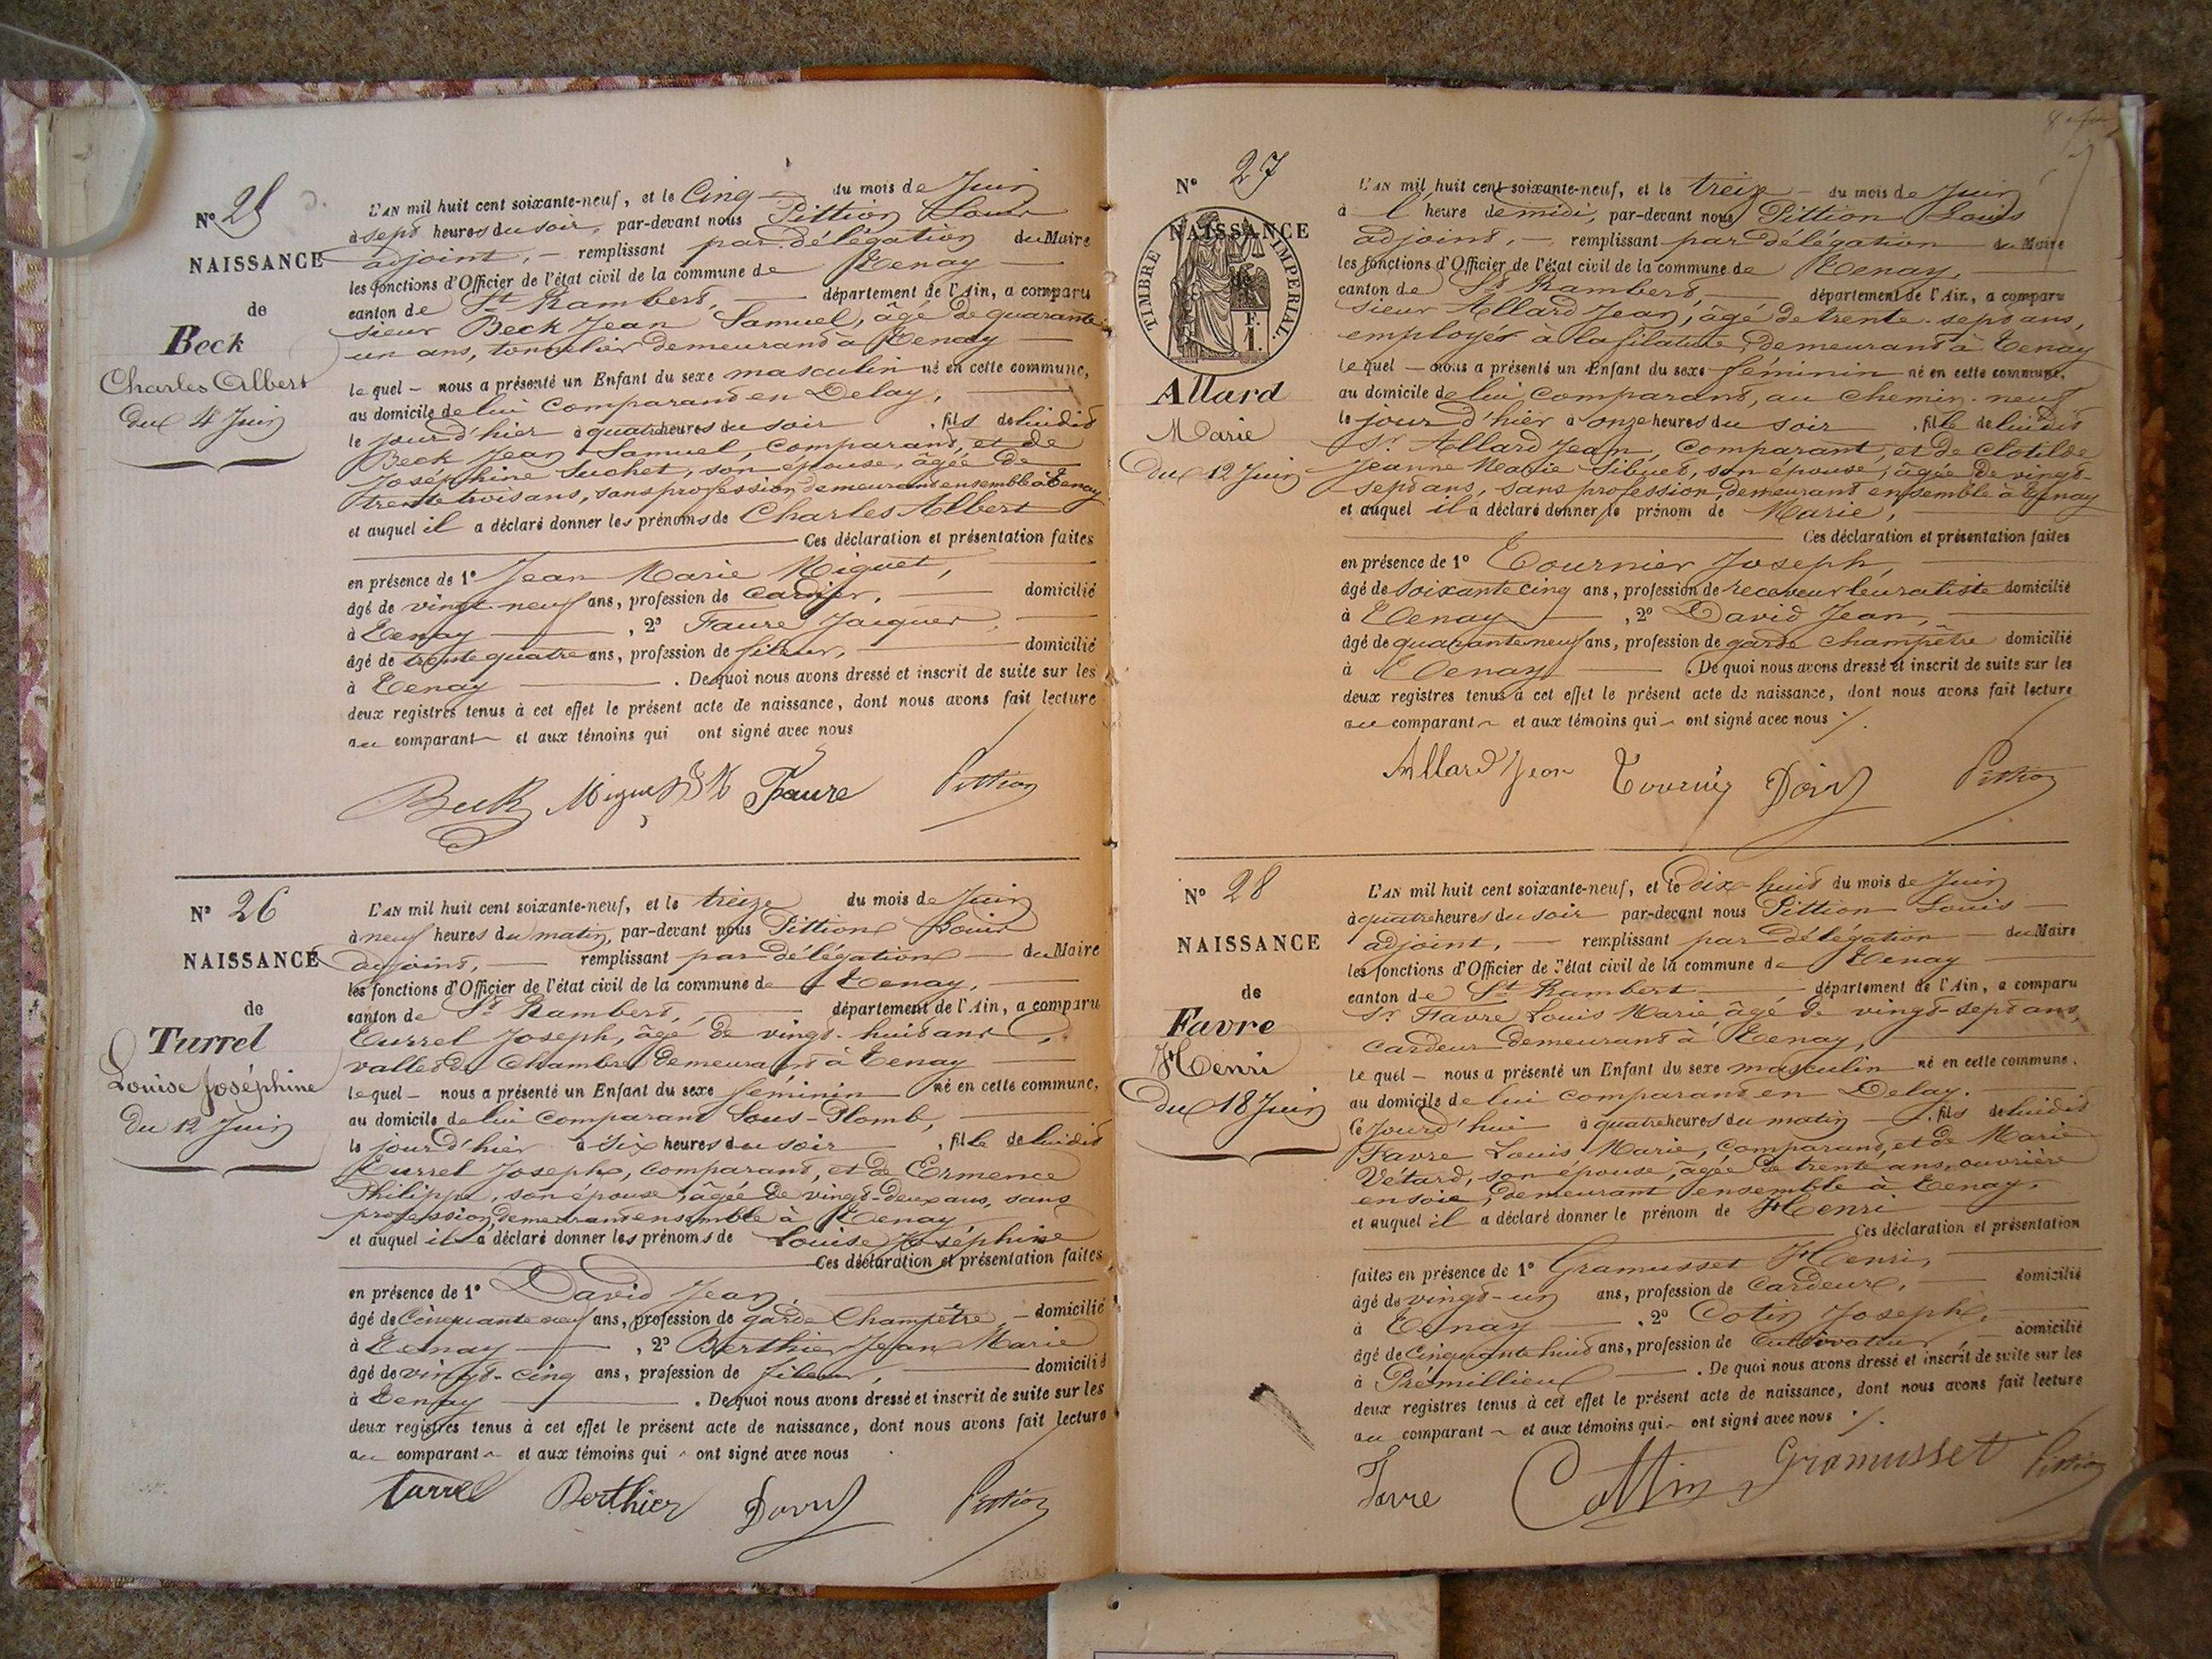 Nº 25
NAISSANCE
de
Beck
Charles Albert
du 4 Juin
L'AN mil huit cent soixante-neuf, et le Cinq du mois de Juin
à sept heures du soir, par-devant nous Pittion Louis
adjoint, remplissant par délégation du Maire
les fonctions d'Officier de l'état civil de la commune de Tenay
canton de St Rambert, département de l'Ain, a comparu
sieur Beck Jean Samuel, âgé de quarante
un ans, tonnelier demeurant à Tenay
lequel nous a présenté un Enfant du sexe masculin né en cette commune,
au domicile de lui comparant en Delay,
le jour d'hier à quatre heures du soir, fils de lui dit
Beck Jean Samuel, comparant, et de
Joséphine Suchet, son épouse, âgée de
trente trois ans, sans profession demeurant ensemble à Tenay
et auquel il a déclaré donner les prénoms de Charles Albert
Ces déclaration et présentation faites
en présence de 1º Jean Marie Miguet,
âgé de vingt-neuf ans, profession de cardeur, domicilié
à Tenay, 2º Faure Jacques,
âgé de trente quatre ans, profession de fileur, domicilié
à Tenay. De quoi nous avons dressé et inscrit de suite sur les
deux registres tenus à cet effet le présent acte de naissance, dont nous avons fait lecture
au comparant et aux témoins qui ont signé avec nous
Beck Miguet JM Faure Pittion
Nº 26
NAISSANCE
de
Turrel
Louise Joséphine
du 12 Juin
L'AN mil huit cent soixante-neuf, et le treize du mois de Juin
à neuf heures du matin, par-devant nous Pittion Louis
adjoint, remplissant par délégation du Maire
les fonctions d'Officier de l'état civil de la commune de Tenay,
canton de St Rambert, département de l'Ain, a comparu
Turrel Joseph, âgé de vingt-huit ans,
vallet de Chambre demeurant à Tenay
lequel nous a présenté un Enfant du sexe féminin né en cette commune,
au domicile de lui comparant Sous-Plomb,
le jour d'hier à six heures du soir, fille de lui dit
Turrel Joseph, comparant, et de Ermence
Philippe, son épouse, âgée de vingt-deux ans, sans
profession, demeurant ensemble à Tenay
et auquel il a déclaré donner les prénoms de Louise Joséphine
Ces déclaration et présentation faites
en présence de 1º David Jean,
âgé de Cinquante neuf ans, profession de garde Champêtre, domicilié
à Tenay, 2º Berthier Jean Marie
âgé de vingt-cinq ans, profession de fileur, domicilié
à Tenay. De quoi nous avons dressé et inscrit de suite sur les
deux registres tenus à cet effet le présent acte de naissance, dont nous avons fait lecture
au comparant et aux témoins qui ont signé avec nous
Turrel Berthier David Pittion
Nº 27
NAISSANCE
TIMBRE IMPERIAL.
F.
1.
Allard
Marie
du 12 Juin
L'AN mil huit cent soixante-neuf, et le treize du mois de Juin
à l'heure de midi, par-devant nous Pittion Louis
adjoint, remplissant par délégation du Maire
les fonctions d'Officier de l'état civil de la commune de Tenay,
canton de St Rambert, département de l'Ain, a comparu
sieur Allard Jean, âgé de trente-sept ans,
employé à la filature, demeurant à Tenay
lequel nous a présenté un Enfant du sexe féminin né en cette commune,
au domicile de lui comparant, au chemin neuf
le jour d'hier à onze heures du soir, fille de lui dit
Sr Allard Jean, comparant, et de Clotilde
Jeanne Marie Sibuet, son épouse, âgée de vingt-
sept ans, sans profession, demeurant ensemble à Tenay
et auquel il a déclaré donner le prénom de Marie,
Ces déclaration et présentation faites
en présence de 1º Tournier Joseph,
âgé de soixante cinq ans, profession de receveur buraliste domicilié
à Tenay, 2º David Jean,
âgé de quarante neuf ans, profession de garde champêtre domicilié
à Tenay. De quoi nous avons dressé et inscrit de suite sur les
deux registres tenus à cet effet le présent acte de naissance, dont nous avons fait lecture
au comparant et aux témoins qui ont signé avec nous
Allard Jean Tournier David Pittion
Nº 28
NAISSANCE
de
Favre
Henri
du 18 Juin
L'AN mil huit cent soixante-neuf, et le dix-huit du mois de Juin
à quatre heures du soir par-devant nous Pittion Louis
adjoint, remplissant par délégation du Maire
les fonctions d'Officier de l'état civil de la commune de Tenay
canton de St Rambert département de l'Ain, a comparu
Sr Favre Louis Marie, âgé de vingt-sept ans
cardeur demeurant à Tenay,
lequel nous a présenté un Enfant du sexe masculin né en cette commune,
au domicile de lui comparant en Delay.
le jourd'hui à quatre heures du matin, fils de lui dit
Favre Louis Marie, comparant, et de Marie
Vétard, son épouse, âgée de trente ans, ouvrière
en soie, demeurant ensemble à Tenay,
et auquel il a déclaré donner le prénom de Henri
Ces déclaration et présentation
faites en présence de 1º Gramusset Henri,
âgé de vingt-un ans, profession de Cardeur, domicilié
à Tenay, 2º Cotin Joseph,
âgé de Cinquante huit ans, profession de Cultivateur, domicilié
à Prémillieu. De quoi nous avons dressé et inscrit de suite sur les
deux registres tenus à cet effet le présent acte de naissance, dont nous avons fait lecture
au comparant et aux témoins qui ont signé avec nous
Favre Cottin Gramusset Pittion